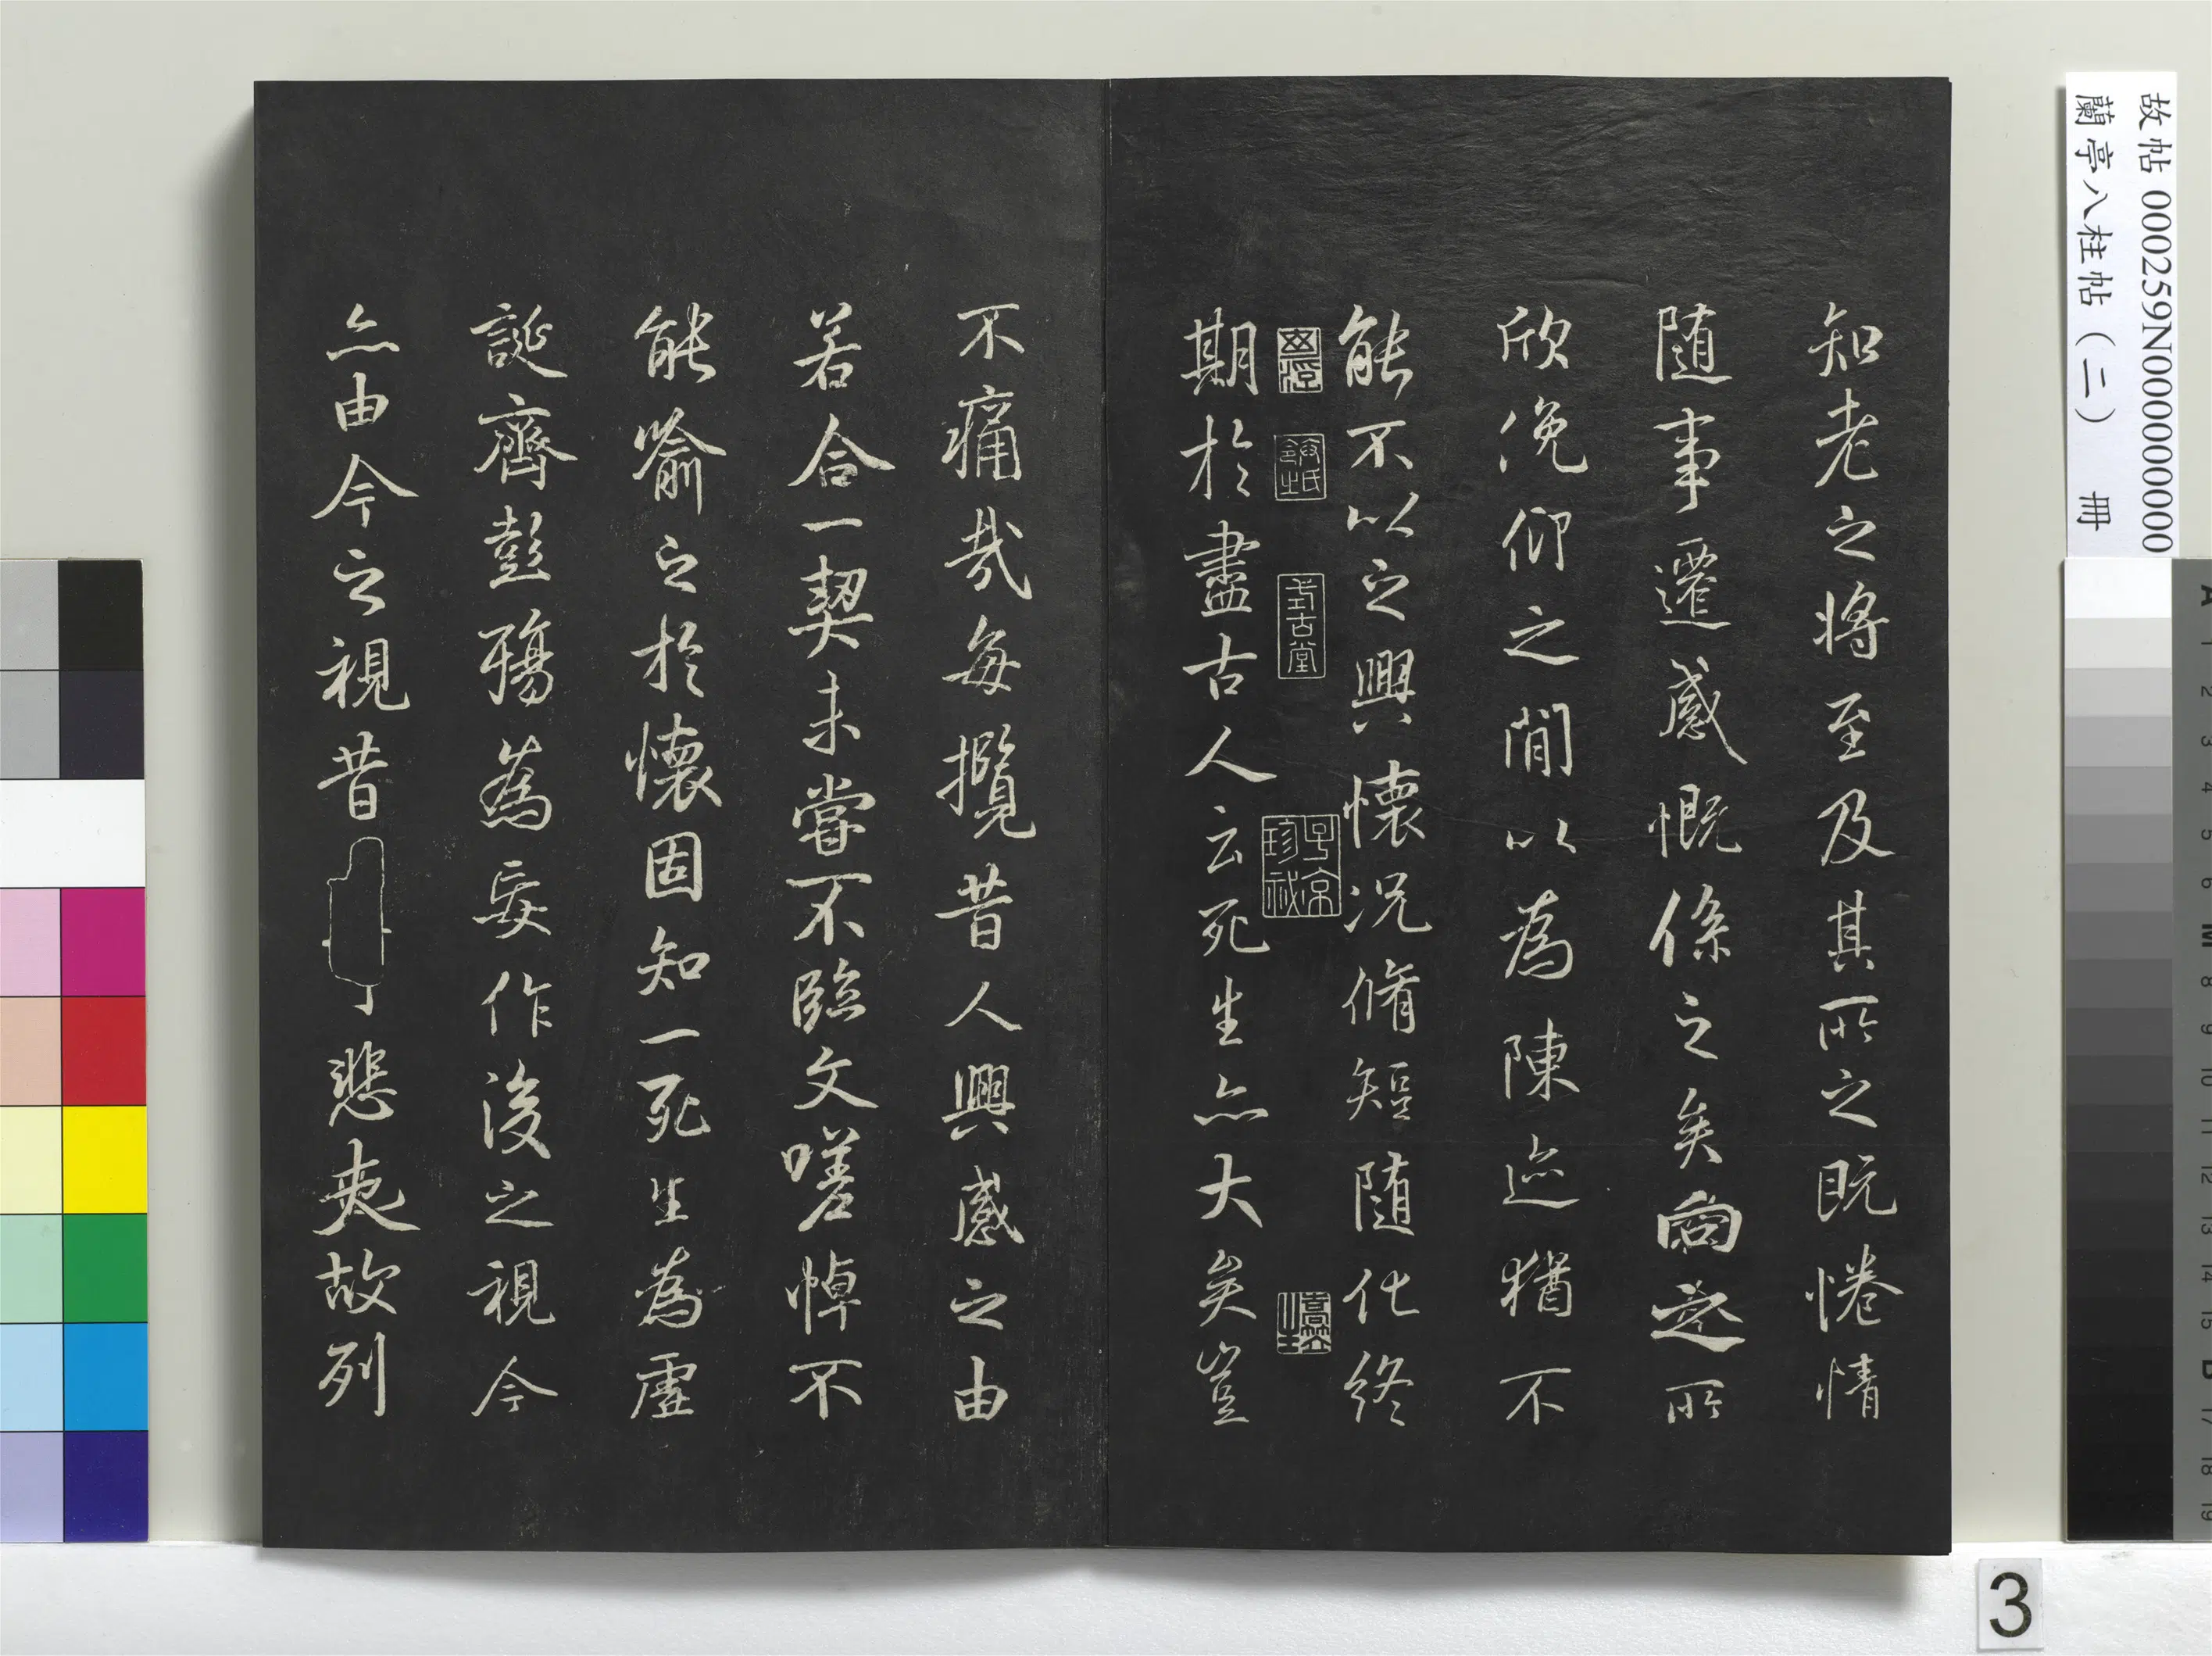 知老之将至及其所之既惓情
随事遷感慨係之矣向之所
欣俛仰之閒以為陳迹猶不
能不以之興懷況脩短随化終
式古堂
子京珍祕
期於盡古人云死生亦大矣豈
不痛哉每攬昔人興感之由
若合一契未嘗不臨文嗟悼不
能喻之於懷固知一死生為虛
誕齊彭殤為妄作後之視今
亦由今之視昔
悲夫故列
故帖 000259N000000000
蘭亭八柱帖(二) 冊
3